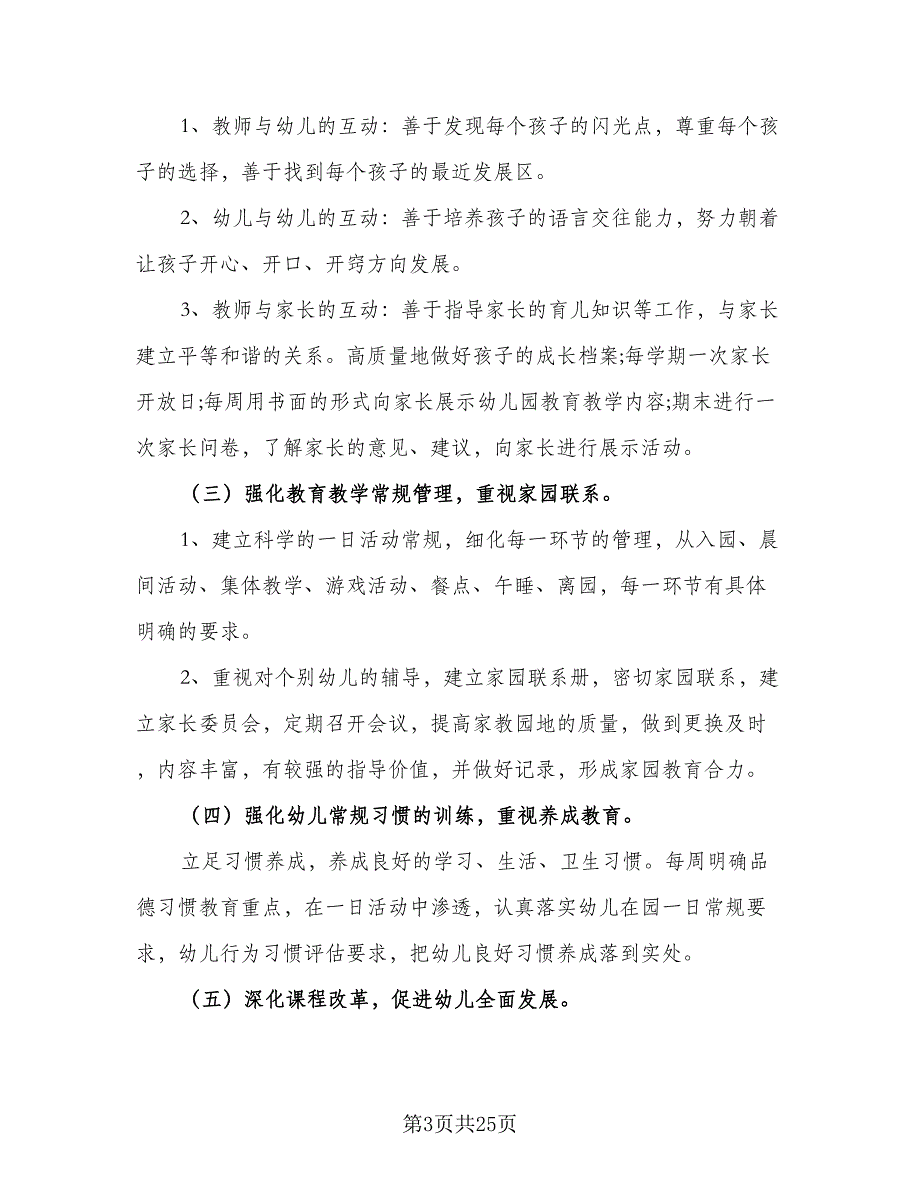 1、教师与幼儿的互动：善于发现每个孩子的闪光点，尊重每个孩
子的选择，善于找到每个孩子的最近发展区。
2、幼儿与幼儿的互动：善于培养孩子的语言交往能力，努力朝着
让孩子开心、开口、开窍方向发展。
3、教师与家长的互动：善于指导家长的育儿知识等工作，与家长
建立平等和谐的关系。高质量地做好孩子的成长档案;每学期一次家长
开放日;每周用书面的形式向家长展示幼儿园教育教学内容;期末进行一
次家长问卷，了解家长的意见、建议，向家长进行展示活动。
（三）强化教育教学常规管理，重视家园联系。
1、建立科学的一日活动常规，细化每一环节的管理，从入园、晨
间活动、集体教学、游戏活动、餐点、午睡、离园，每一环节有具体
明确的要求。
2、重视对个别幼儿的辅导，建立家园联系册，密切家园联系，建
立家长委员会，定期召开会议，提高家教园地的质量，做到更换及时
，内容丰富，有较强的指导价值，并做好记录，形成家园教育合力。
（四）强化幼儿常规习惯的训练，重视养成教育。
立足习惯养成，养成良好的学习、生活、卫生习惯。每周明确品
德习惯教育重点，在一日活动中渗透，认真落实幼儿在园一日常规要
求，幼儿行为习惯评估要求，把幼儿良好习惯养成落到实处。
（五）深化课程改革，促进幼儿全面发展。
第3页共25页